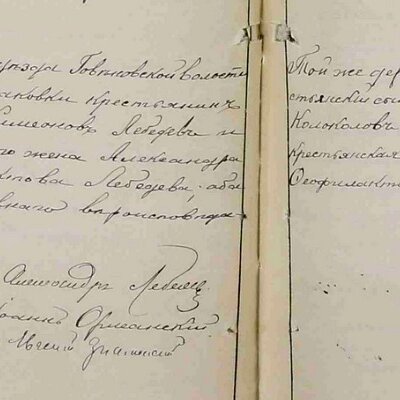 уѣзда Говѣновской волости
аковки крестьянинъ
Симеоновъ Лебедевъ и
го жена Александра
това Лебедева, оба
внаго вѣроисповѣда-
Александръ Лебедев
оаннъ Орлеанский
Знаменский
Той же дер
стьянский сы
Колоколовъ
крестьянская
Ѳеофилакт